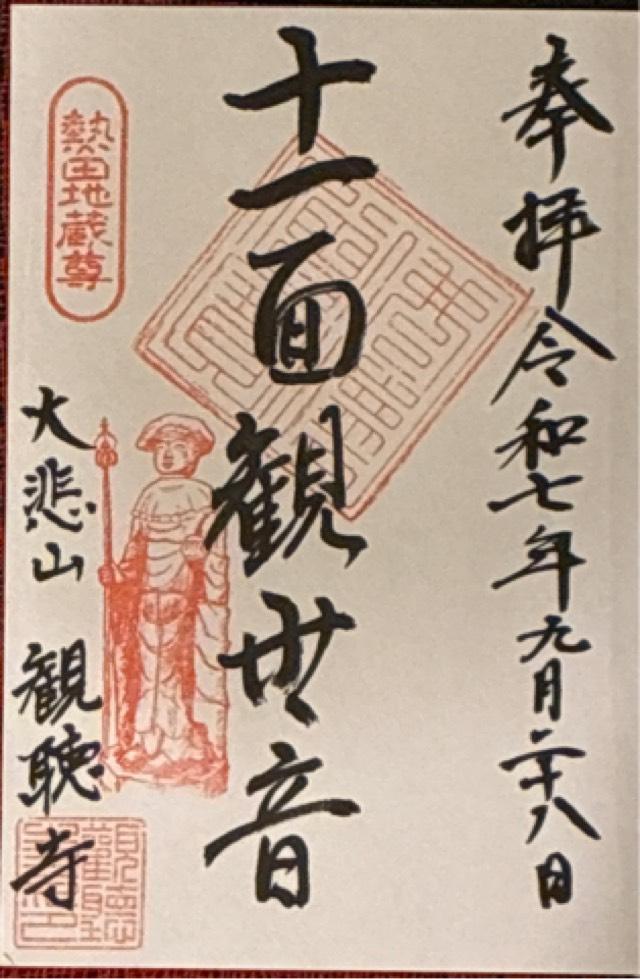 奉拝 令和七年九月二十八日
十一面観世音
熱田地蔵尊
大悲山 観聴寺